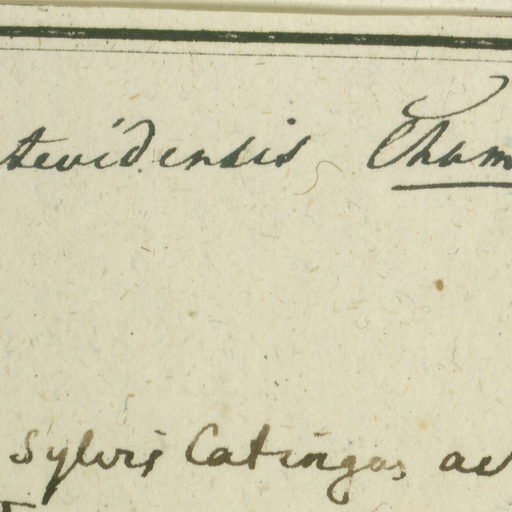 tevidensis Cham
Sylvis Catingas ad